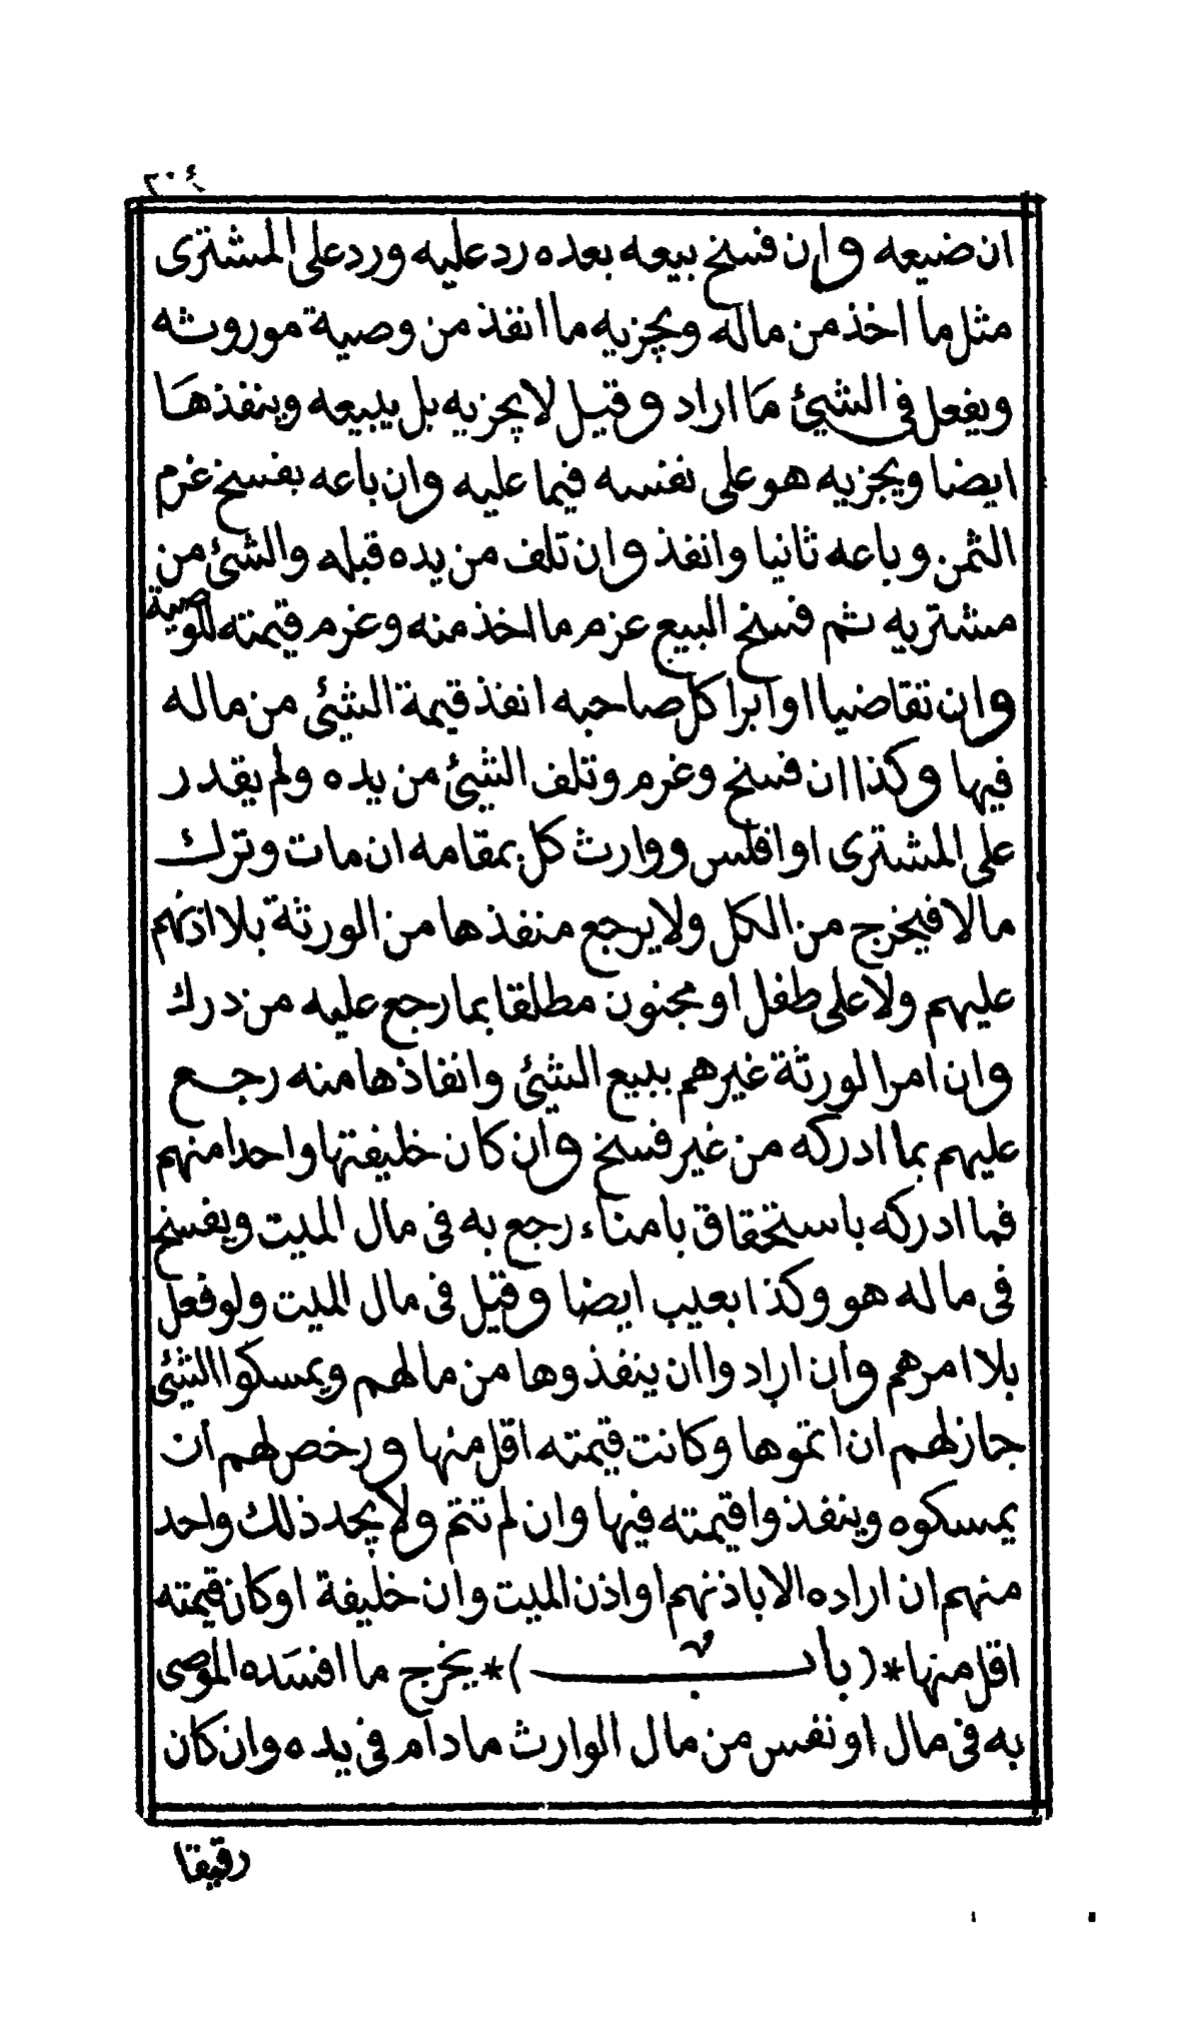 ٢٠٤
ان ضيعه وان فسخ بيعه بعده رد عليه ورد على المشترى
مثل ما اخذ من ماله ويجزيه ما انفذ من وصية موروثه
ويفعل فى الشيئ ما اراد وقيل لا يجزيه بل يبيعه وينفذها
ايضا ويجزيه هو على نفسه فيما عليه وان باعه بفسخ غرم
الثمن وباعه ثانيا وانفذ وان تلف من يده قبله والشئ من
مشتريه ثم فسخ البيع عزم ما اخذ منه وغرم قيمته للوصية
وان تقاضيا او ابرا كل صاحبه انفذ قيمة الشيئ من ماله
فيها وكذا ان فسخ وغرم وتلف الشيئ من يده ولم يقدر
على المشترى او افلس ووارث كل بمقامه ان مات وترك
مالا فيخرج من الكل ولا يرجع منفذها من الورثة بلا اذنهم
عليهم ولا على طفل او مجنون مطلقا بما رجع عليه من درك
وان امر الورثة غيرهم ببيع الشيئ وانفاذها منه رجع
عليهم بما ادركه من غير فسخ وان كان خليفتها واحدا منهم
فما ادركه باستحقاق بامناء رجع به فى مال الميت ويفسخ
فى ماله هو وكذا بعيب ايضا وقيل فى مال الميت ولو فعل
بلا امرهم وان ارادوا ان ينفذوها من مالهم ويمسكوا الشئ
جاز لهم ان اتموها وكانت قيمته اقل منها ورخص لهم أن
يمسكوه وينفذوا قيمته فيها وان لم تتم ولا يجد ذلك واحد
منهم ان اراده الا باذنهم او اذن الميت وان خليفة او كان قيمته
اقل منها *(باب)* يخرج ما افسده الموصى
به فى مال او نفس من مال الوارث مادام فى يده وان كان
رقيقا